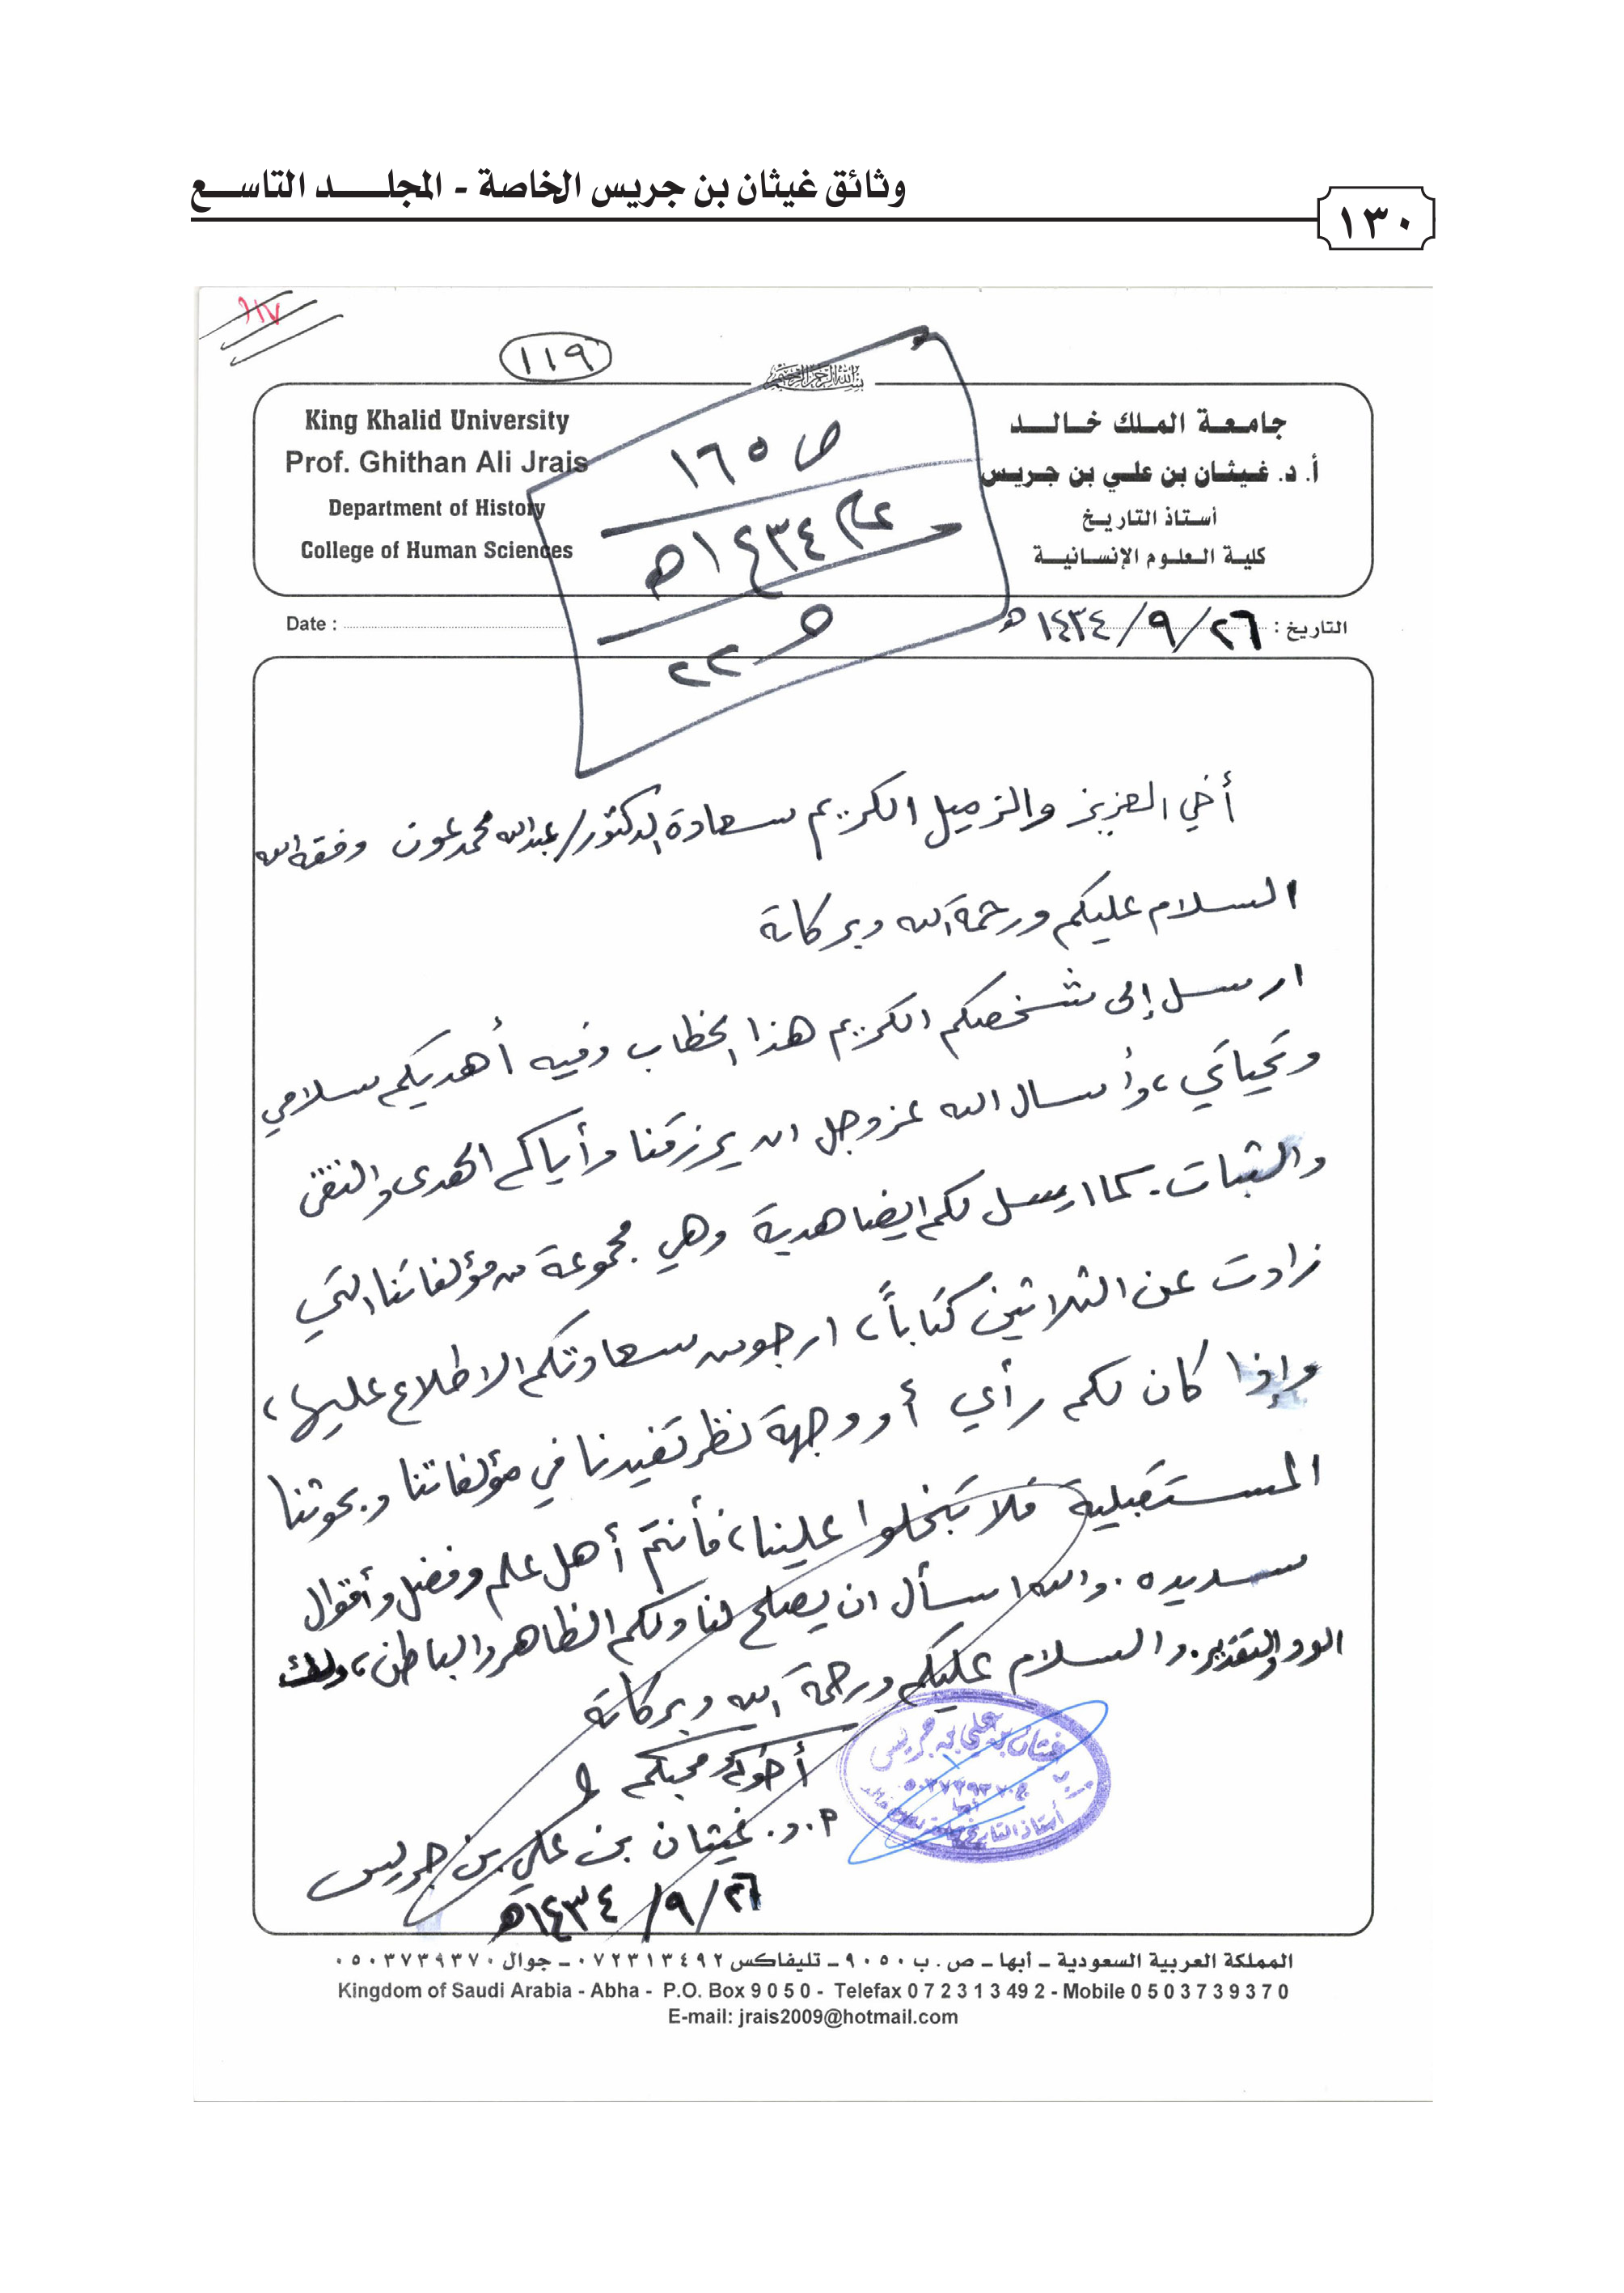 وثائق غيثان بن جريس الخاصة - المجلد التاسع
١٣٠
١١٧
١١٩
بسم الله الرحمن الرحيم
King Khalid University
Prof. Ghithan Ali Jrais
Department of History
College of Human Sciences
جامعة الملك خالد
أ. د. غيثان بن علي بن جريس
أستاذ التاريخ
كلية العلوم الإنسانية
ص ١٦٥
عام ١٤٣٤هـ
Date :
التاريخ : ٢٦/٩/١٤٣٤هـ
أخي العزيز والزميل الكريم سعادة الدكتور/ عبدالله محمد عون وفقه الله
السلام عليكم ورحمة الله وبركاتة
ارسل إلى شخصكم الكريم هذا الخطاب وفيه أهديكم سلامي
وتحياتي، وأسال الله عز وجل ان يرزقنا وأياكم الهدى والتقى
والثبات. كما ارسل لكم ايضا هدية وهي مجموعة من مؤلفاتنا التي
زادت عن الثلاثين كتاباً، ارجو من سعادتكم الاطلاع عليها،
وإذا كان لكم رأي أو وجهة نظر تفيدنا في مؤلفاتنا وبحوثنا
المستقبلية فلا تبخلوا علينا، فأنتم أهل علم وفضل وأقوال
سديده. والله اسأل ان يصلح لنا ولكم الظاهر والباطن، ولك
الود والتقدير. والسلام عليكم ورحمة الله وبركاتة
أخوك محبكم
أ.د. غيثان بن علي بن جريس
٢٦/٩/١٤٣٤هـ
غيثان بن علي بن جريس
أبها
المملكة العربية السعودية – أبها – ص. ب ٩٠٥٠ – تليفاكس ٠٧٢٣١٣٤٩٢ – جوال ٠٥٠٣٧٣٩٣٧٠
Kingdom of Saudi Arabia - Abha - P.O. Box 9 0 5 0 - Telefax 0 7 2 3 1 3 49 2 - Mobile 0 5 0 3 7 3 9 3 7 0
E-mail: jrais2009@hotmail.com